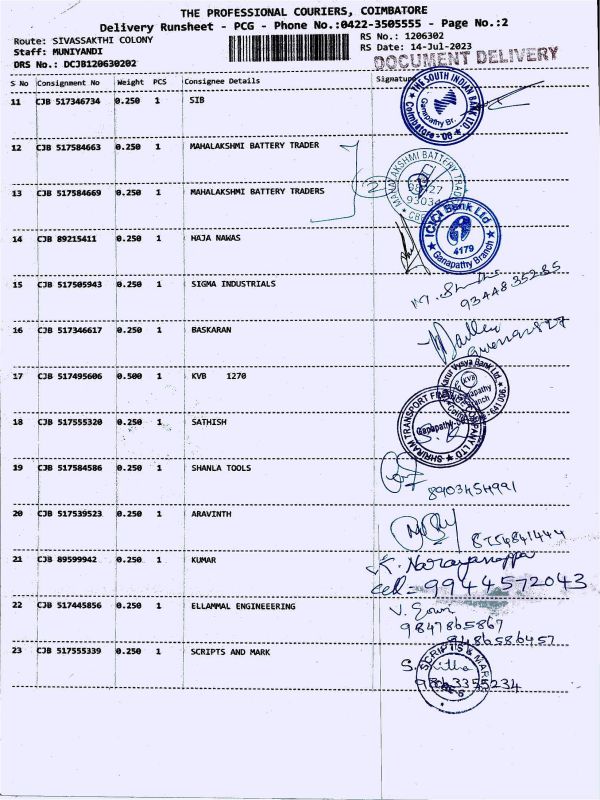 THE PROFESSIONAL COURIERS, COIMBATORE
Delivery Runsheet - PCG - Phone No.:0422-3505555 - Page No.:2
Route: SIVASSAKTHI COLONY
RS No.: 1206302
Staff: MUNIYANDI
RS Date: 14-Jul-2023
DOCUMENT DELIVERY
DRS No.: DCJB120630202
S No Consignment No Weight PCS Consignee Details Signature
11 CJB 517346734 0.250 1 SIB
THE SOUTH INDIAN BANK LTD
Ganapathy Br.
Coimbatore - 06
12 CJB 517584663 0.250 1 MAHALAKSHMI BATTERY TRADER
MAHALAKSHMI BATTERY TRADE
2
13 CJB 517584669 0.250 1 MAHALAKSHMI BATTERY TRADERS
14 CJB 89215411 0.250 1 HAJA NAWAS
ICICI Bank Ltd.
4179
Ganapathy Branch
15 CJB 517505943 0.250 1 SIGMA INDUSTRIALS
9344835285
16 CJB 517346617 0.250 1 BASKARAN
17 CJB 517495606 0.500 1 KVB 1270
Karur Vysya Bank Ltd.
KVB
Ganapathy Branch
18 CJB 517555320 0.250 1 SATHISH
SHRIRAM TRANSPORT FINANCE COMPANY LTD
Ganapathy
19 CJB 517584586 0.250 1 SHANLA TOOLS
8903454991
20 CJB 517539523 0.250 1 ARAVINTH
8754841444
21 CJB 89599942 0.250 1 KUMAR
K. Narayanappa
cell = 9944572043
22 CJB 517445856 0.250 1 ELLAMMAL ENGINEEERING
V. Gowri
9847865867
9486586457
23 CJB 517555339 0.250 1 SCRIPTS AND MARK
SCRIPTS & MARK
9863355234